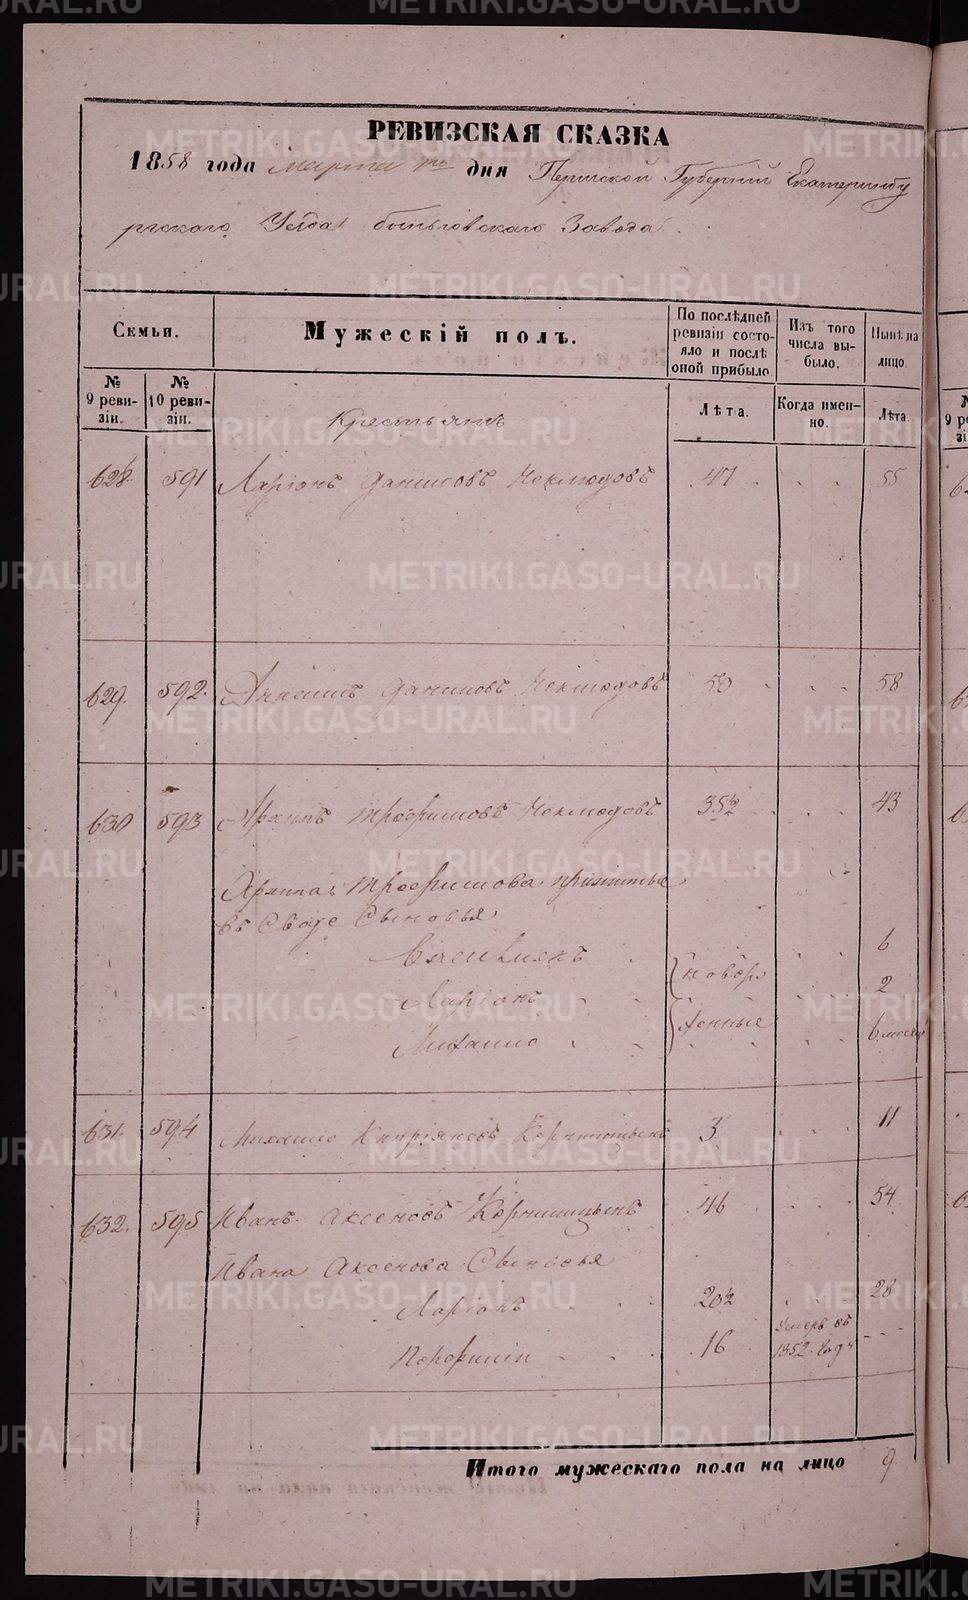 РЕВИЗСКАЯ СКАЗКА
1858 года Марта дня Пермской Губернiи Екатеринбу
ргскаго Уезда быньговскаго Завода
Семьи.
Мужескiй полъ.
По послѣдней ревизiи состояло и послѣ оной прибыло.
Изъ того числа выбыло.
Нынѣ на лицо.
№ 9 ревизiи.
№ 10 ревизiи.
Лѣта.
Когда именно.
Лѣта.
Крестьянъ
628. 591 Ларiонъ Даниловъ Неклюдовъ 47 55
629. 592. Даниловъ Неклюдовъ 50 58
630 593 Архипъ Трофимовъ Неклюдовъ 35½ 43
Архипа Трофимова прижитые
въ Сыновья
Ларiонъ новоро 2
Михаило жденные 6 месяц
6
631. 594 Михаило Кипрiяновъ 3 11
632. 595 Иванъ Аксеновъ Кормилицынъ 46 54
Ивана Аксенова Сыновья
Ларiонъ 20½ 28
16 Умеръ въ 1852 году
Итого мужескаго пола на лицо 9
METRIKI.GASO-URAL.RU